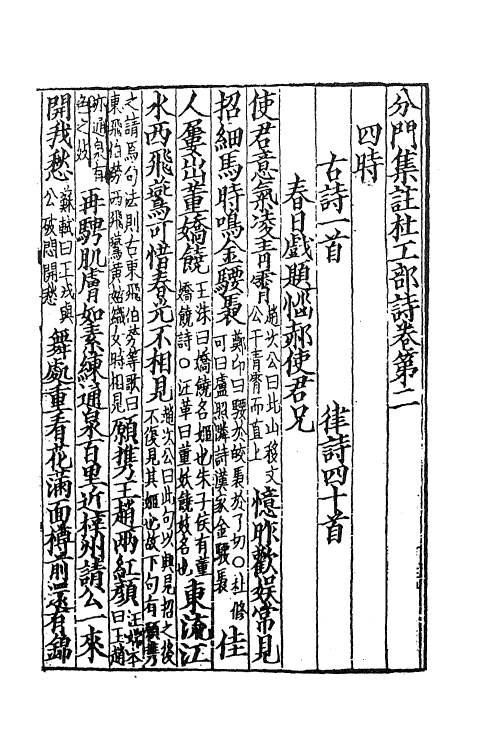 分門集註杜工部詩卷第二
四時
古詩一首　律詩四十首
春日戲題惱郝使君兄
使君意氣凌青霄趙次公曰北山移文公干青霄而直上憶昨歡娛常見
招細馬時鳴金騕褭鄭卬曰騕於皎褭於了切○杜修可曰盧照鄰詩漢家金騕褭佳
人屢出董嬌饒王洙曰嬌饒名姬也朱子侯有董嬌饒詩○汪革曰董妖饒妓名也東流江
水西飛鷰可惜春光不相見趙次公曰此句以興見招之後不復見其姬也故下句有願攜
之請焉句法則古東飛伯勞等歌曰東飛伯勞西飛鷰黃姑織女時相見願攜王趙兩紅顏曰王趙
亦通泉有色之妓再騁肌膚如素練通泉百里近梓州請公一來
開我愁蘇軾曰王戎與公破悶開愁舞處重看花滿面樽前還有錦